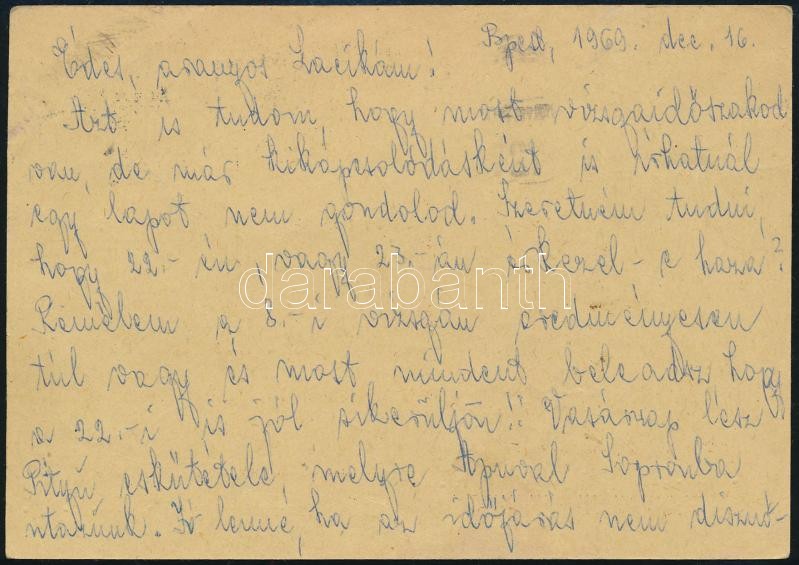 Bpest, 1969. dec. 16.
Édes, aranyos Lacikám!
Azt is tudom, hogy most vizsgaidőszakod
van, de már kikápcsolódásként is írhatnál
egy lapot nem gondolod. Szeretném tudni,
hogy 22.-én, vagy 23.-án érkezel-e haza?
Remélem a 8.-i vizsgán eredményesen
túl vagy és most mindent beleadsz hogy
a 22.-i is jól sikerüljön!! Vasárnap lesz
Pityu eskütétele, melyre Apuval Sopronba
utazunk. Jó lenne, ha az időjárás nem diszut-
darabanth